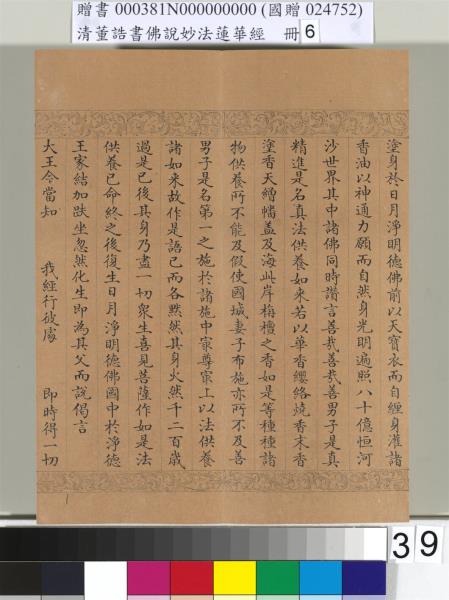 贈書 000381N000000000 (國贈 024752)
清董誥書佛說妙法蓮華經 冊 6
塗身於日月淨明德佛前以天寶衣而自纏身灌諸
香油以神通力願而自然身光明遍照八十億恒河
沙世界其中諸佛同時讚言善哉善哉善男子是真
精進是名真法供養如來若以華香纓絡燒香末香
塗香天繒幡蓋及海此岸栴檀之香如是等種種諸
物供養所不能及假使國城妻子布施亦所不及善
男子是名第一之施於諸施中最尊最上以法供養
諸如來故作是語已而各默然其身火然千二百歲
過是已後其身乃盡一切衆生喜見菩薩作如是法
供養已命終之後復生日月淨明德佛國中於淨德
王家結加趺坐忽然化生即為其父而說偈言
大王今當知 我經行彼處 即時得一切
39